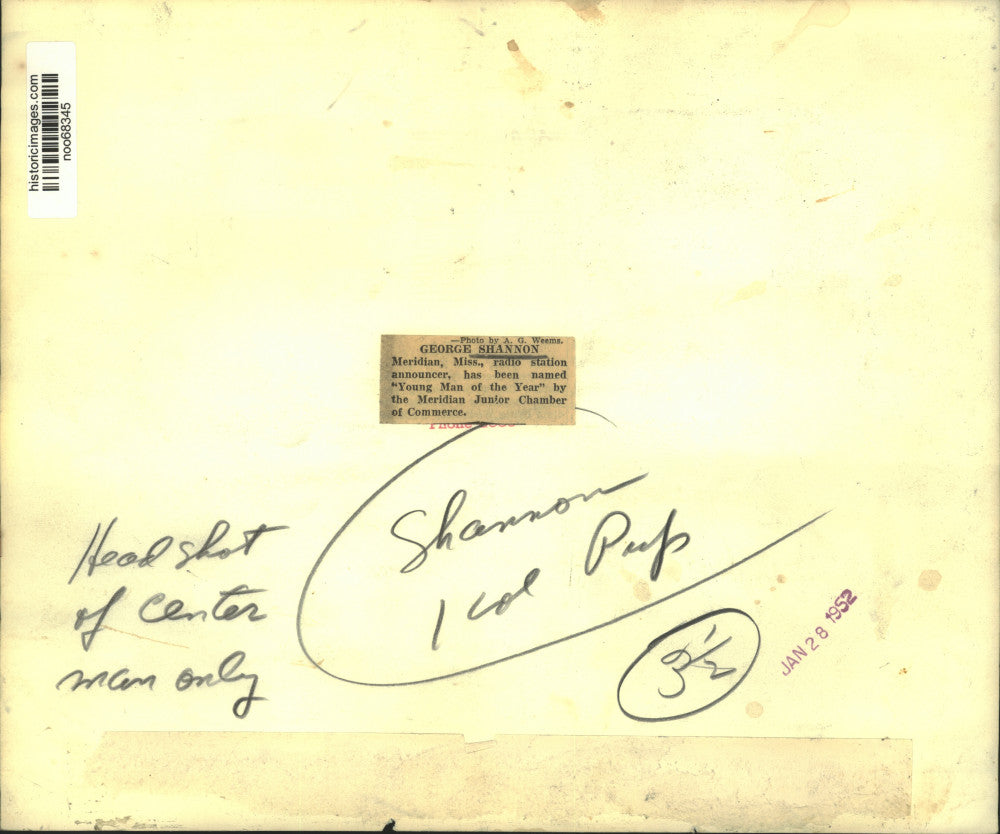 historicimages.com
noo68345
—Photo by A. G. Weems.
GEORGE SHANNON
Meridian, Miss., radio station
announcer, has been named
"Young Man of the Year" by
the Meridian Junior Chamber
of Commerce.
Phone
Shannon
1 col
Head shot
of center
man only
3 1/2
JAN 28 1952